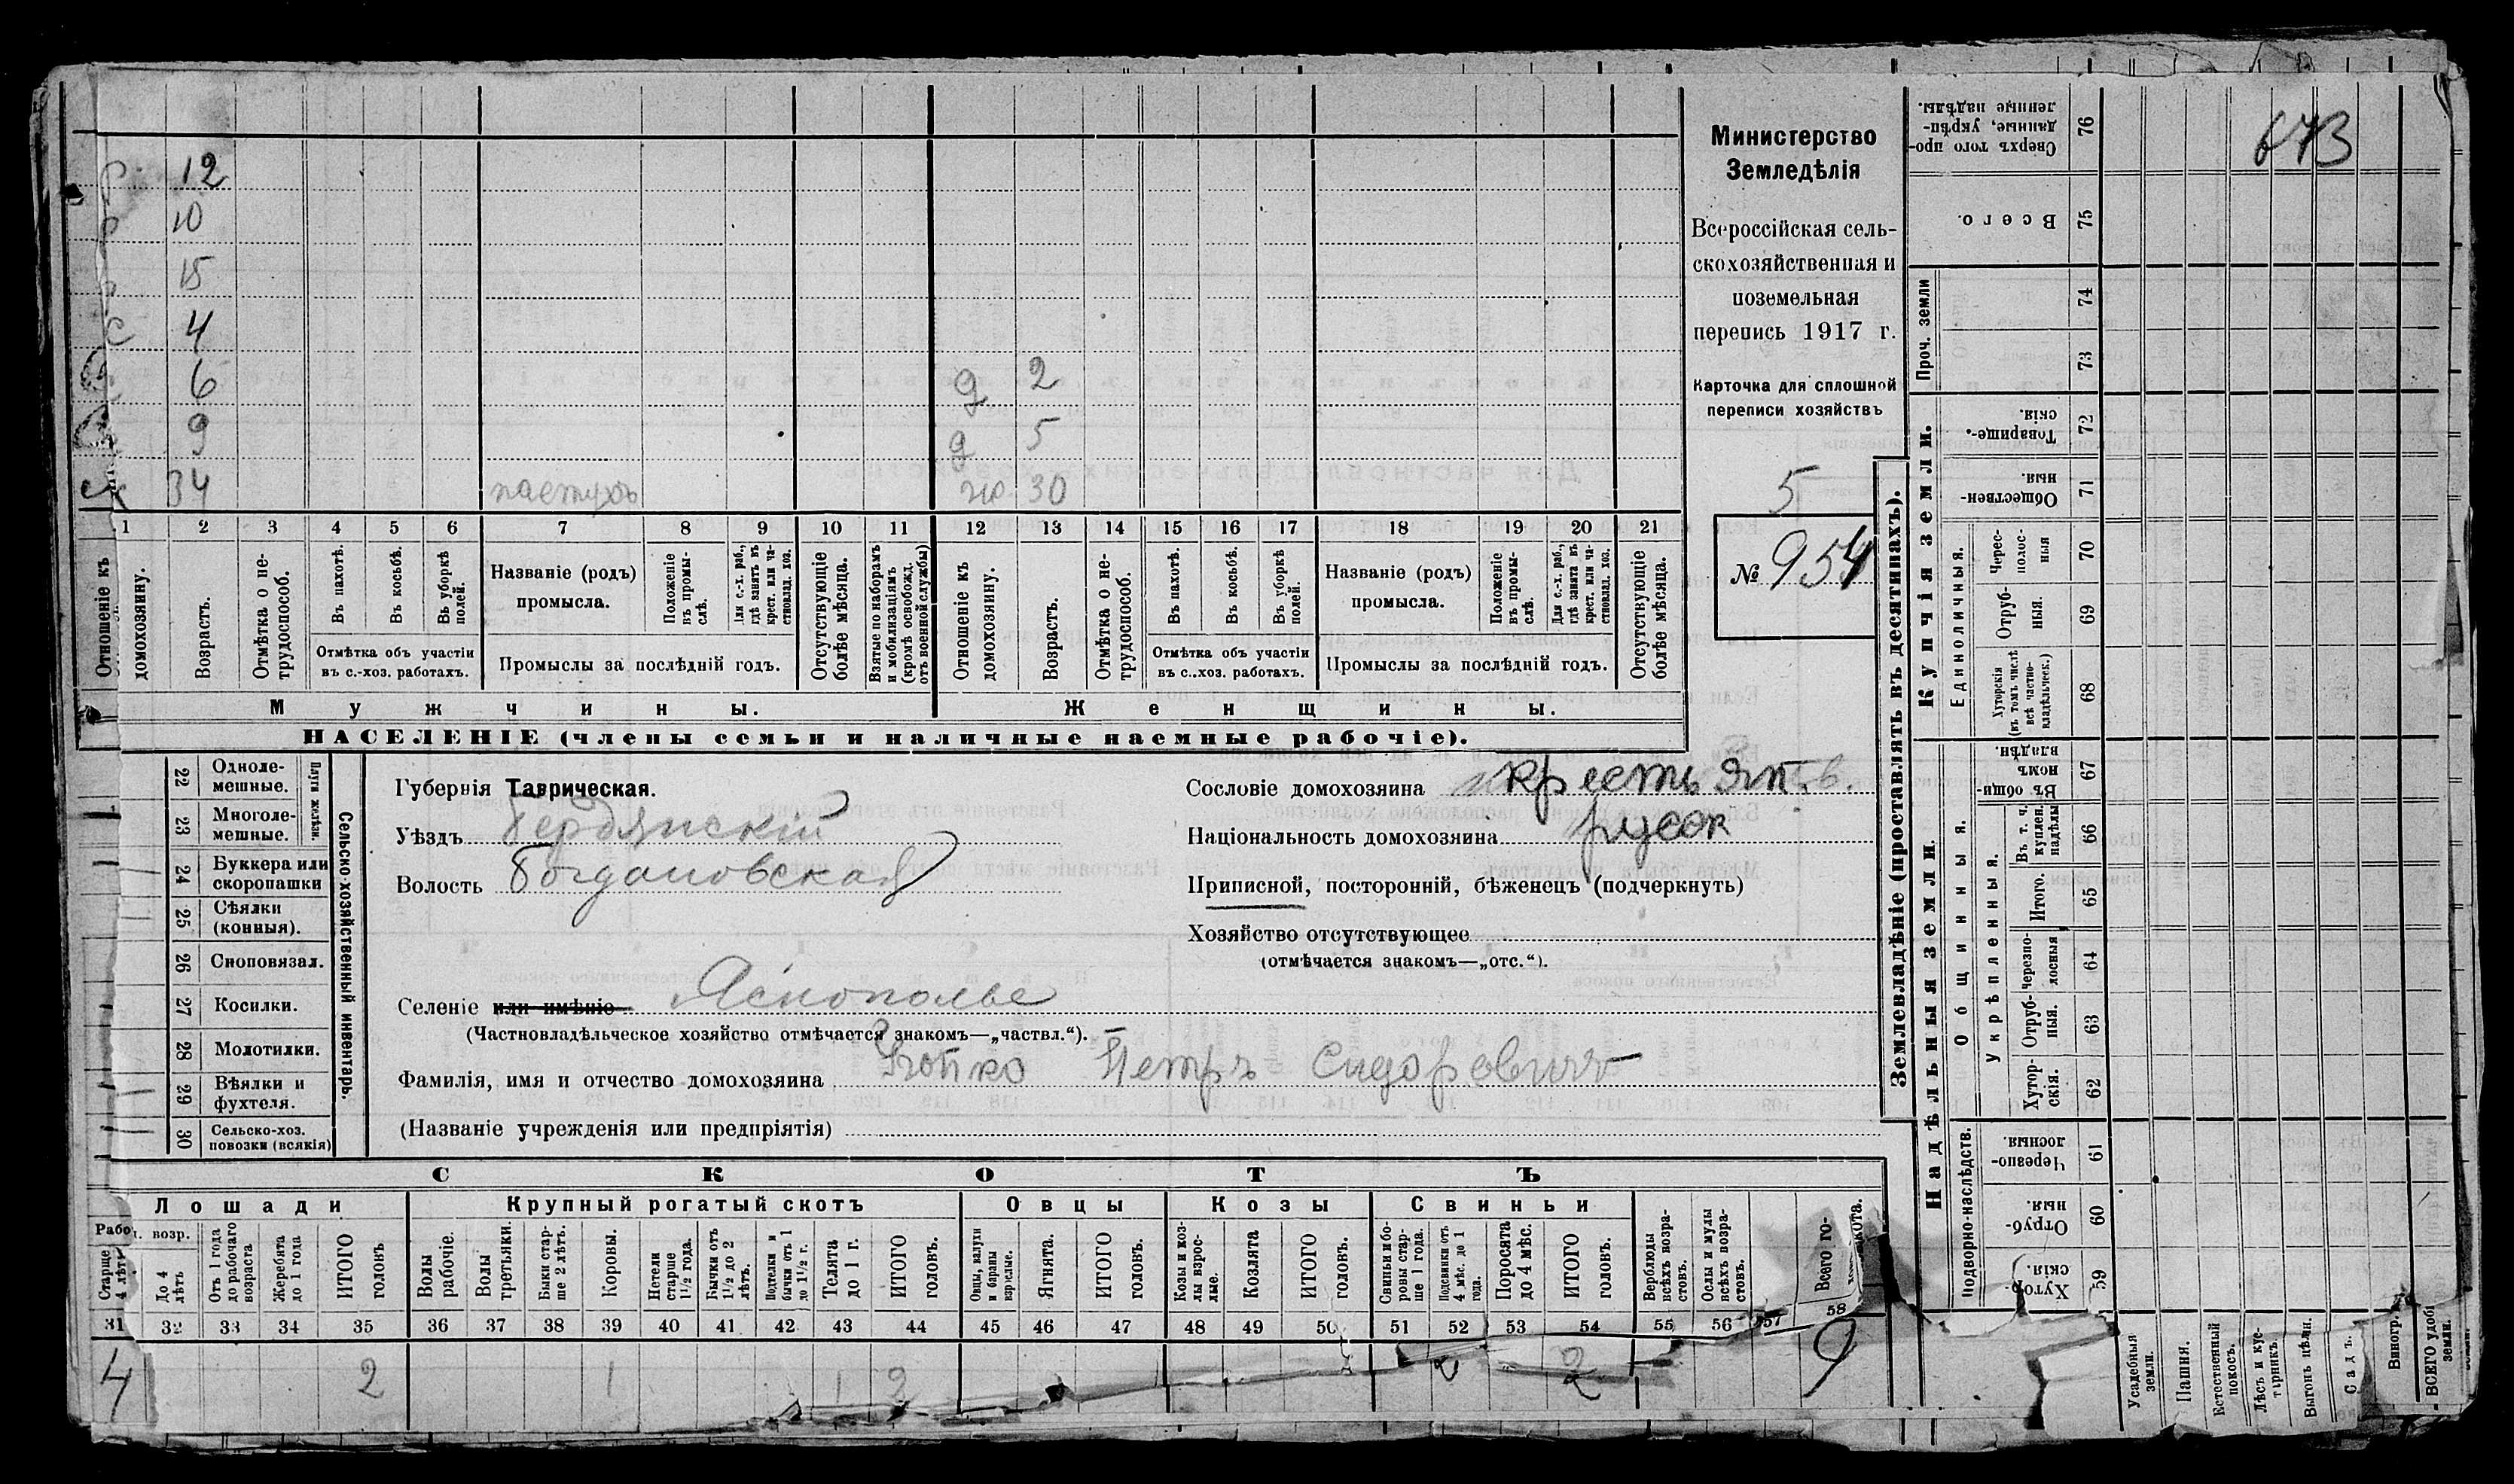 673
12
10
15
4
6 д 2
9 д 5
34 пастухъ 30
1 2 3 4 5 6 7 8 9 10 11 12 13 14 15 16 17 18 19 20 21
Отношеніе къ домохозяину.
Возрастъ.
Отмѣтка о не-
трудоспособ.
Въ пахотѣ.
Въ косьбѣ.
Въ уборкѣ
полей.
Отмѣтка объ участіи
въ с.-хоз. работахъ.
Названіе (родъ)
промысла.
Положеніе
въ промы-
слѣ.
Для с.-х. раб.,
гдѣ занятъ въ
крест. или ча-
стновлад. хоз.
Промыслы за послѣдній годъ.
Отсутствующіе
болѣе мѣсяца.
Взятые по наборамъ
и мобилизаціямъ
(кромѣ освобожд.
отъ военной службы)
Отношеніе къ
домохозяину.
Возрастъ.
Отмѣтка о не-
трудоспособ.
Въ пахотѣ.
Въ косьбѣ.
Въ уборкѣ
полей.
Отмѣтка объ участіи
въ с.-хоз. работахъ.
Названіе (родъ)
промысла.
Положеніе
въ промы-
слѣ.
Для с.-х. раб.,
гдѣ занята въ
крест. или ча-
стновлад. хоз.
Промыслы за послѣдній годъ.
Отсутствующіе
болѣе мѣсяца.
Мужчины.
Женщины.
НАСЕЛЕНІЕ (члены семьи и наличные наемные рабочіе).
Министерство
Земледѣлія
Всероссійская сель-
скохозяйственная и
поземельная
перепись 1917 г.
Карточка для сплошной
переписи хозяйствъ
5
№ 954
22 Одноле-
мешные.
23 Многоле-
мешные.
Плуги желѣзн.
24 Буккера или
скоропашки
25 Сѣялки
(конныя).
26 Сноповязал.
27 Косилки.
28 Молотилки.
29 Вѣялки и
фухтеля.
30 Сельско-хоз.
повозки (всякія)
Сельско-хозяйственный инвентарь.
Губернія Таврическая.
Уѣздъ Бердянскій
Волость Богдановская
Сословіе домохозяина крестьян.
Національность домохозяина русск
Приписной, посторонній, бѣженецъ (подчеркнуть)
Хозяйство отсутствующее
(отмѣчается знакомъ—„отс.“).
Селеніе или имѣніе Яснополье
(Частновладѣльческое хозяйство отмѣчается знакомъ—„частвл.“).
Фамилія, имя и отчество домохозяина Петръ Сидоровичъ
(Названіе учрежденія или предпріятія)
СКОТЪ
Лошади
Крупный рогатый скотъ
Овцы
Козы
Свиньи
Старше
4 лѣтъ
До 4
лѣтъ
Отъ 1 года
до рабочаго
возраста
Жеребята
до 1 года
ИТОГО
головъ
Волы
рабочіе.
Волы
третьяки.
Быки стар-
ше 2 лѣтъ.
Коровы.
Нетели
старше
1½ года.
Бычки отъ
1½ до 2
лѣтъ.
Подтелки и
бычки отъ 1
до 1½ г.
Телята
до 1 г.
ИТОГО
головъ.
Овцы, валухи
и бараны
взрослые.
Ягнята.
ИТОГО
головъ.
Козы и коз-
лы взрос-
лые.
Козлята
ИТОГО
головъ.
Свиньи и бо-
ровы стар-
ше 1 года.
Подсвинки отъ
4 мѣс. до 1
года.
Поросята
до 4 мѣс.
ИТОГО
головъ.
Верблюды
всѣхъ возра-
стовъ.
Ослы и мулы
всѣхъ возра-
стовъ.
Всего го-
31 32 33 34 35 36 37 38 39 40 41 42 43 44 45 46 47 48 49 50 51 52 53 54 55 56 57 58
4 2 1 1 2 2 2 9
Землевладѣніе (проставлять въ десятинахъ).
Надѣльныя земли.
Купчія земли.
Проч. земли
Сверхъ того про-
данные, укрѣп-
ленные надѣлы.
76
Всего.
75
74
73
Товарище-
скія.
72
Обществен-
ныя.
71
Единоличныя.
Черес-
полос-
ныя
70
Отруб-
ныя.
69
Хуторскія
(въ томъ числѣ
всѣ частно-
владѣльческ.)
68
Въ общи-
номъ
владѣн.
67
Общинныя.
Укрѣпленныя.
Въ т. ч.
куплен.
надѣлы
66
Итого.
65
Черезпо-
лосныя
64
Отруб-
ныя.
63
Хутор-
скія.
62
Подворно-наслѣдств.
Черезпо-
лосныя.
61
Отруб-
ныя.
60
Хутор-
скія.
59
Усадебныя
земли.
Пашня.
Естественный
покосъ.
Лѣсъ и кус-
тарникъ.
Выгонъ цѣлн.
Садъ.
Виногр.
ВСЕГО удобн
земли.